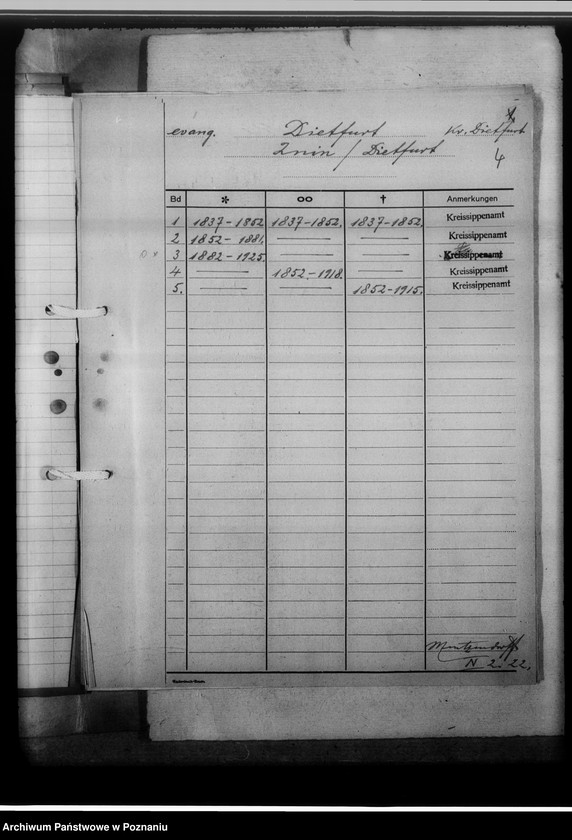 evang. Dietfurt Kr. Dietfurt
Znin / Dietfurt 4
Bd * ∞ † Anmerkungen
1 1837-1852 1837-1852. 1837-1852. Kreissippenamt
2 1852-1881. — — Kreissippenamt
3 1882-1925. — — Kreissippenamt
4 — 1852-1918. — Kreissippenamt
5. — — 1852-1915. Kreissippenamt
N 2. 22.
Archiwum Państwowe w Poznaniu